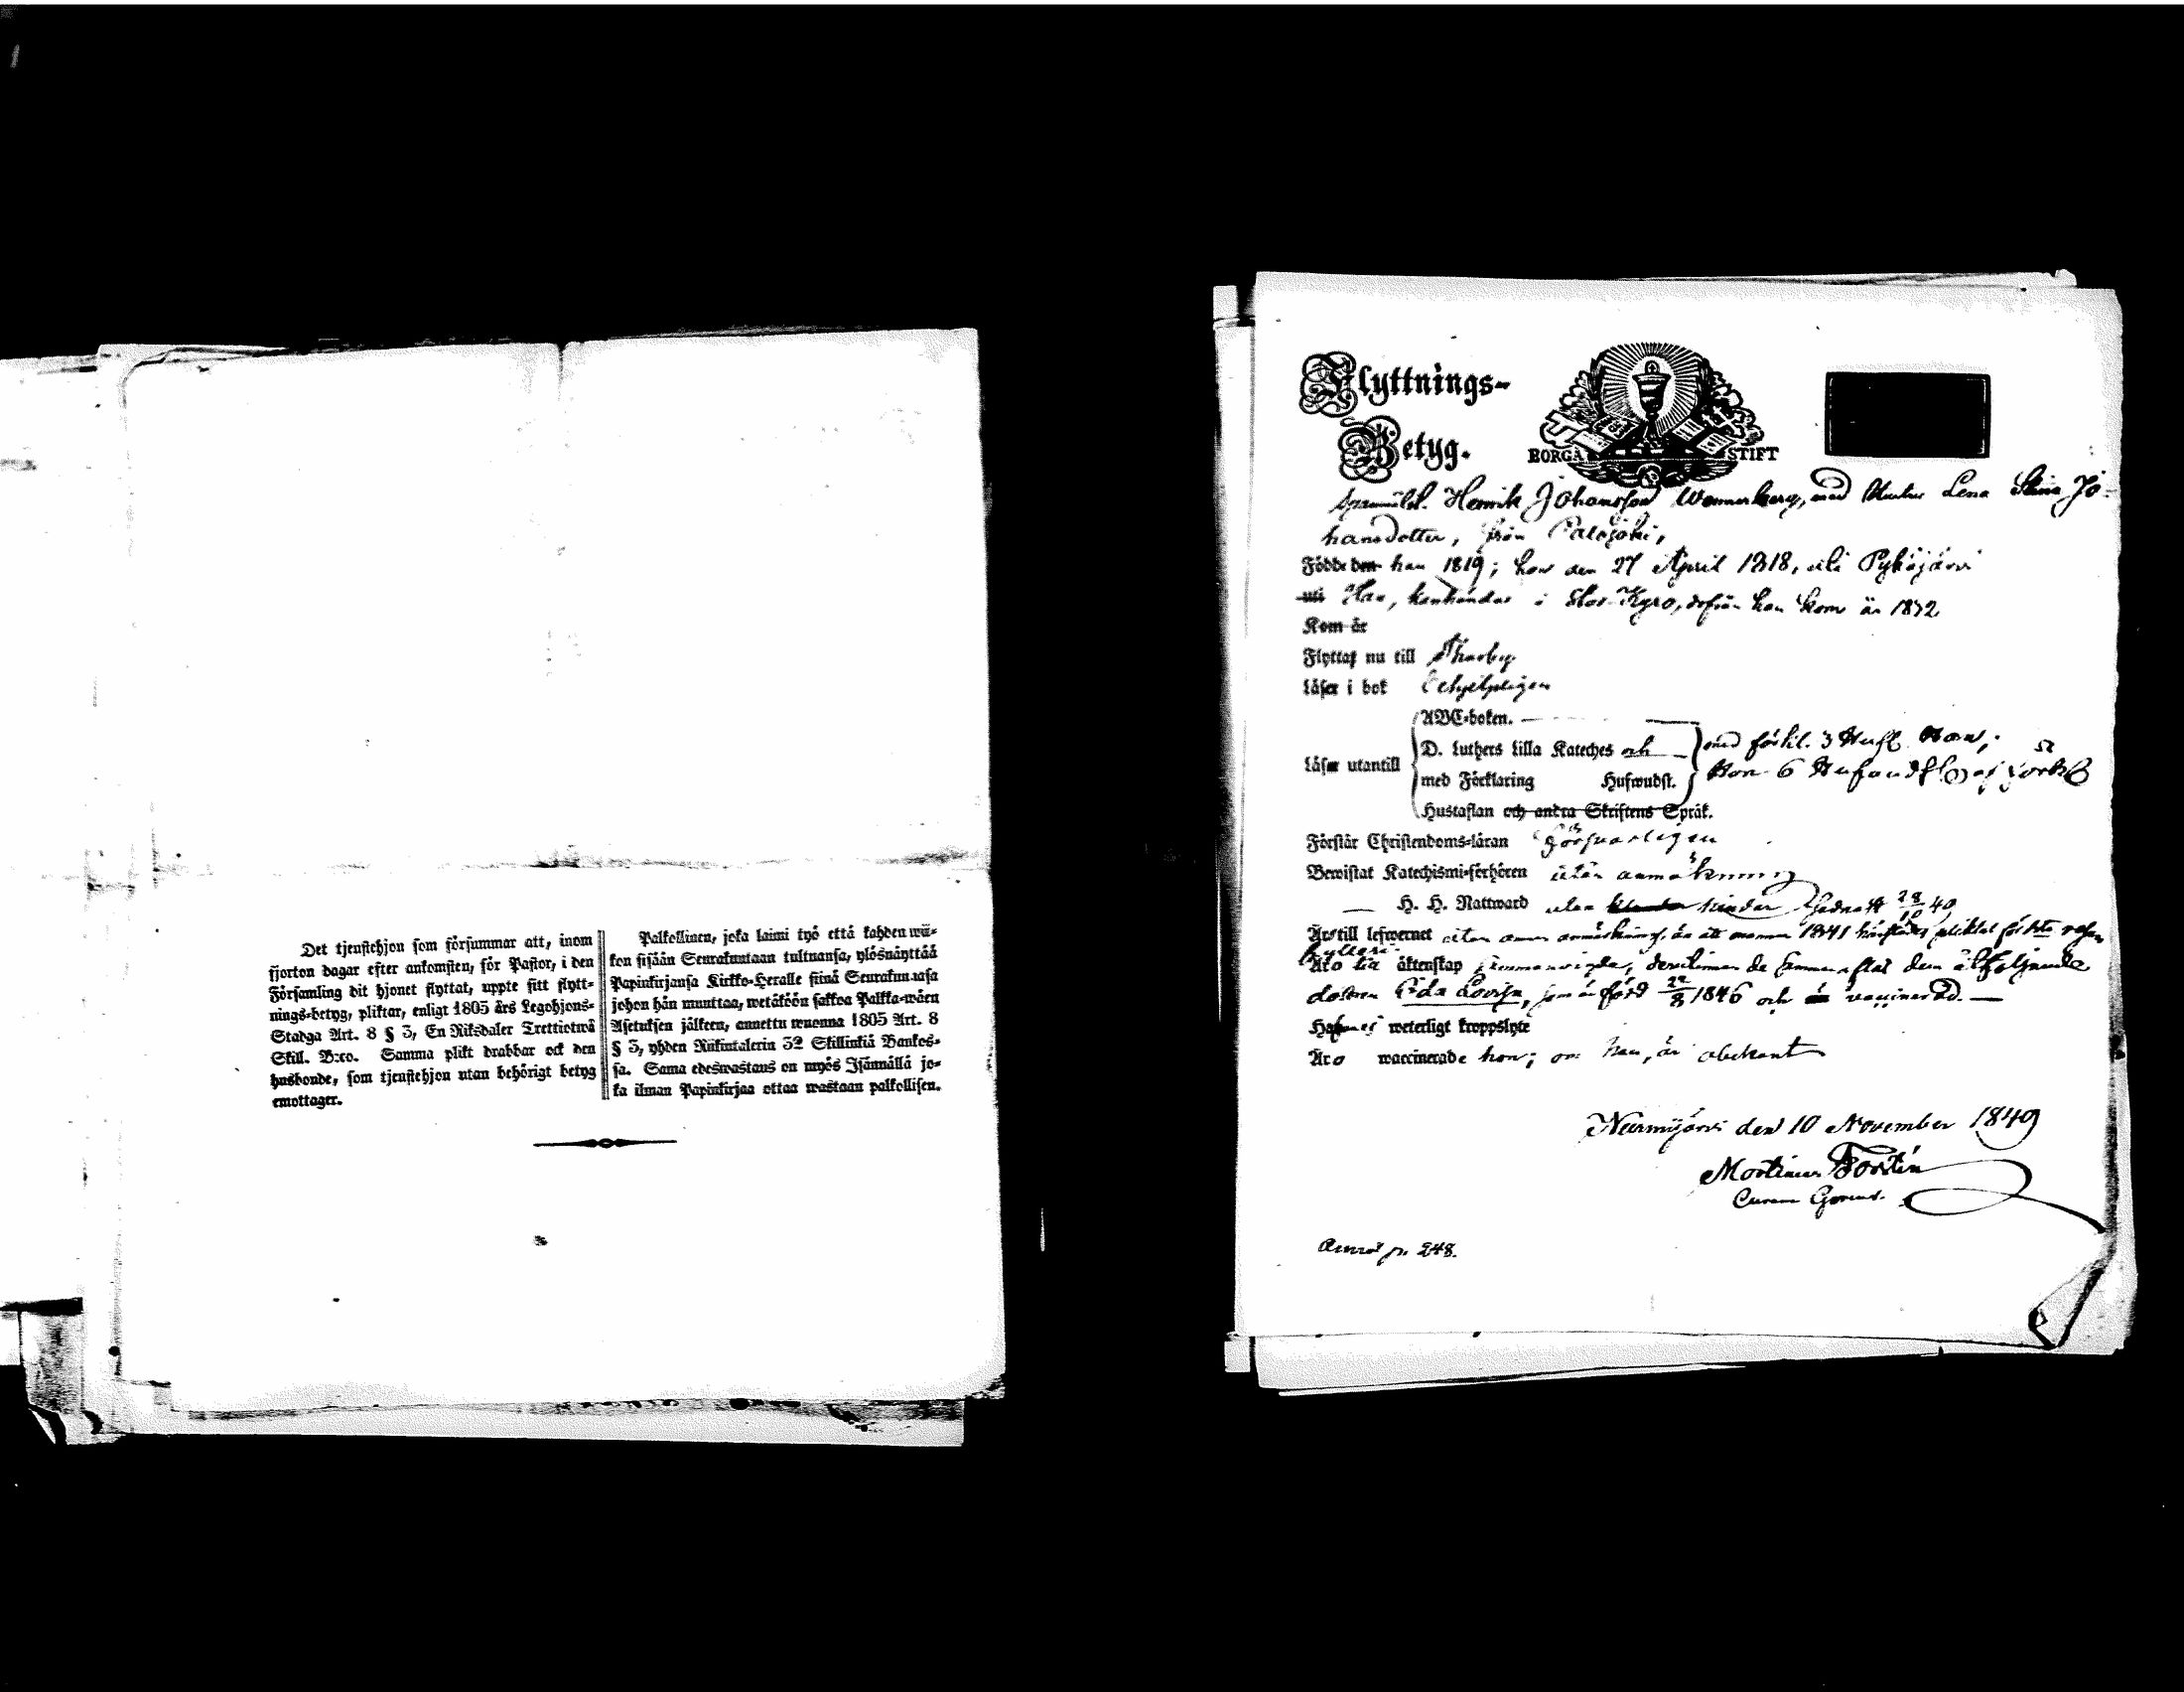 Det tjenstehjon som försummar att, inom
fjorton dagar efter ankomsten, för Pastor, i den
Församling dit hjonet flyttat, uppte sitt flytt-
nings-betyg, pliktar, enligt 1805 års Legohjons-
Stadga Art. 8 § 3, En Riksdaler Trettiotwå
Skill. B:co. Samma plikt drabbar ock den
husbonde, som tjenstehjon utan behörigt betyg
emottager.
Palkollinen, joka laimi lyö että kahden wii-
kon sisään Seurakuntaan tultuansa, ylösnäyttää
Papinkirjansa Kirkko-Herralle siinä Seurakunnasa
johon hän muuttaa, wetäköön sakkoa Palkka-wäen
Asetuksen jälkeen, annettu wuonna 1805 Art. 8
§ 3, yhden Riikintalerin 32 Skillinkiä Bankos-
sa. Sama edeswastaus on myös Isännällä jo-
ka ilman Papinkirjaa ottaa wastaan palkollisen.
Flyttnings-
Betyg.
BORGÅ STIFT
Henrik Johansson Wennerberg, med Hustru Lena Stina Jo-
hansdotter, från Palojoki,
Födde den han 1819; hon den 27 April 1818, uti Pyhäjärvi
uti Han, i Stor-Kyro, dfrån han kom år 1832
Kom år
Flyttar nu till Thusby
Läser i bok
ABC-boken.
Läser utantill D. Luthers lilla Kateches och med förkl. 3 Hufst. Han;
med Förklaring Hufwudst. Hon 6
Hustaflan och andra Skriftens Språk.
Förstår Christendoms-läran Försvarligen
Bewistat Katechismi-förhören utan anmärkning
H. H. Nattward utan hinder 28/10 49
Äro till lefwernet utan annan anmärkning, än att 1841
Äro till äktenskap sammanvigda, de den åtföljande
dottren Eda Lovisa, som är född 22/8 1846 och är vaccinerad.
Hafwa weterligt kroppslyte
Äro waccinerade hon; om han, är obekant
Nurmijärvi den 10 November 1849
Martinus Fortin
Curam Gerens.
p. 248.